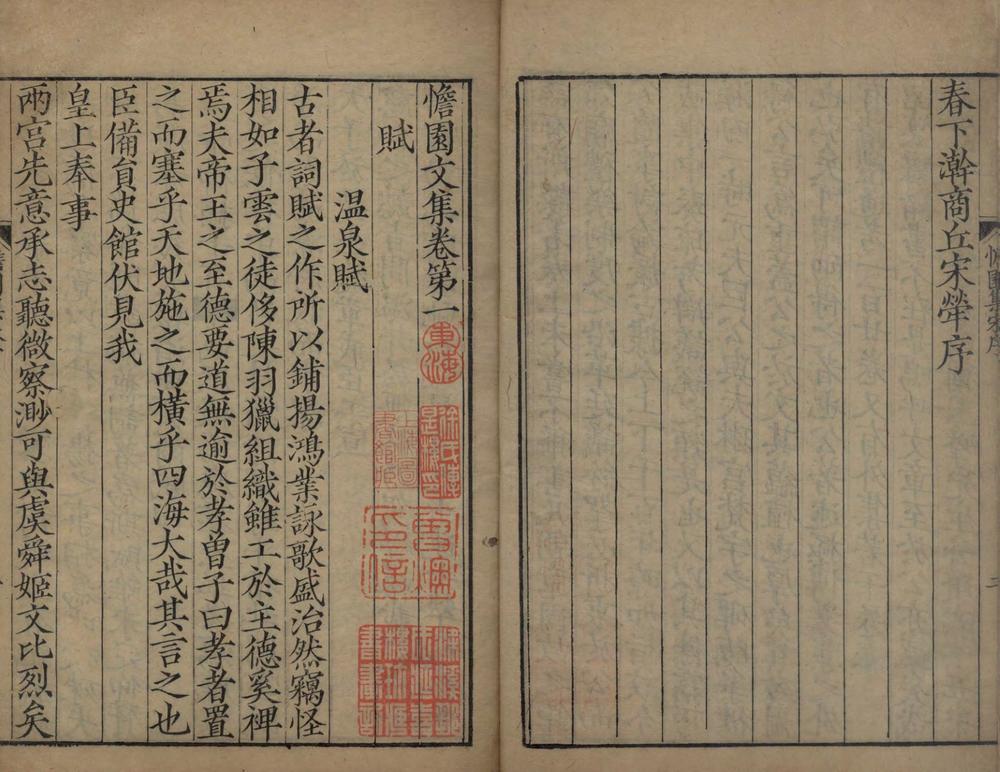 春下澣商丘宋犖序
憺園集宋序
憺園文集卷第一
賦
温泉賦
古者詞賦之作所以鋪揚鴻業詠歌盛治然竊怪
相如子雲之徒侈陳羽獵組織雖工於主德奚裨
焉夫帝王之至德要道無逾於孝曽子曰孝者置
之而塞乎天地施之而橫乎四海大哉其言之也
臣備員史館伏見我
皇上奉事
兩宮先意承志聽微察渺可與虞舜姬文比烈矣
東海
徐氏傳是樓印
上海圖書館所